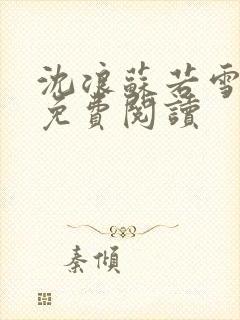 沈浪蘇若雪
免費閱讀
秦傾